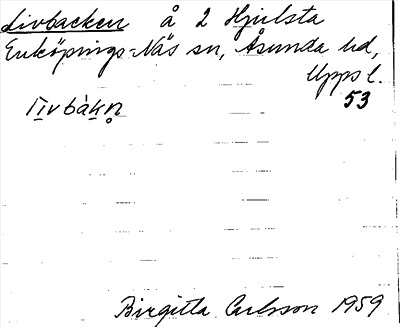 Livbacken å 2 Hjulsta
Enköpings-Näs sn, Åsunda hd,
Upps l.
53
Birgitta Carlsson 1959